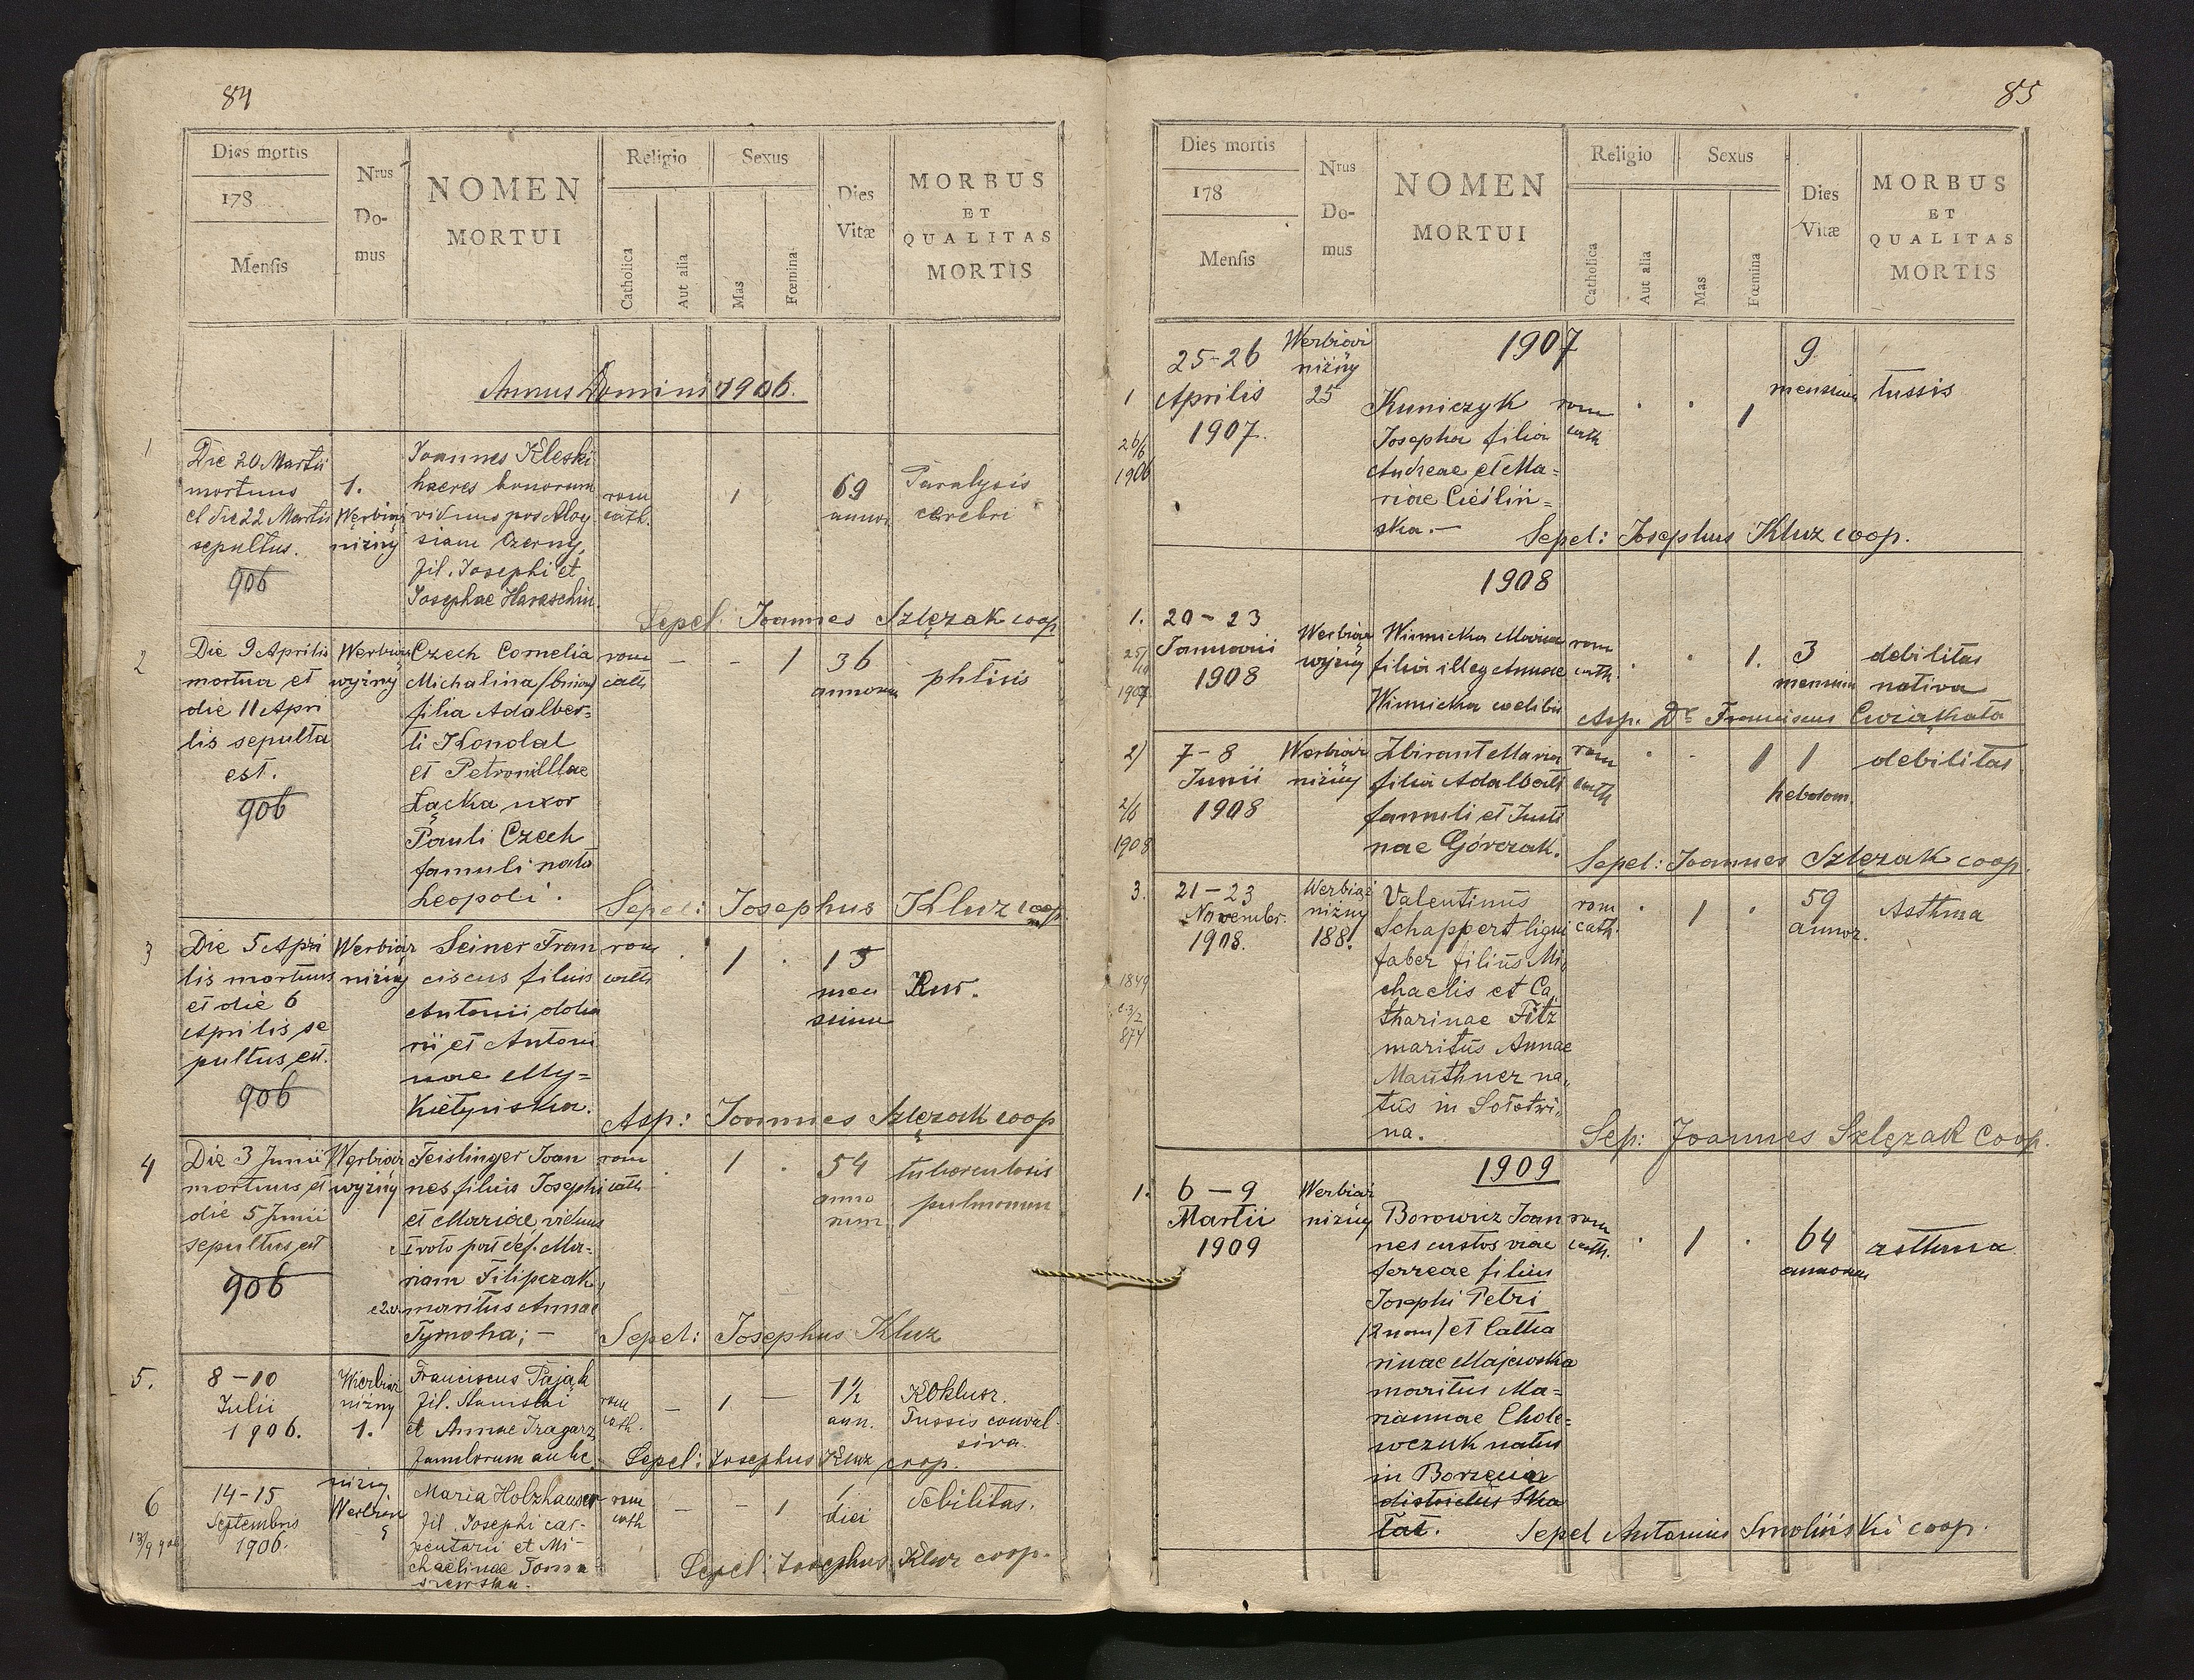 84
Dies mortis
178
Mensis
Nrus
Do-
mus
NOMEN
MORTUI
Religio
Catholica
Aut alia
Sexus
Mas
Fœmina
Dies
Vitæ
MORBUS
ET
QUALITAS
MORTIS
Annus Domini 1906.
1
Die 20 Martii
mortuus
et die 22 Martii
sepultus.
906
1.
Werbiąż
niżny
Joannes Kleski
haeres bonorum
viduus pos Aloy
siam Czerny,
fil. Josephi et
Josephae Haraschin.
rom
cath.
1
69
annor.
Paralysis
cerebri
Sepel: Joannes Szlęzak coop
2
Die 9 Aprilis
mortua et
die 11 Apri
lis sepulta
est.
906
Werbiąż
wyżny
Czech Cornelia
Michalina (binom)
filia Adalber=
ti Kondal
et Petronillae
Łącka uxor
Pauli Czech
famuli nata
Leopoli.
rom
cath
- - 1
36
annorum
phtisis
Sepel: Josephus Kluz coop.
3
Die 5 Apri
lis mortuus
et die 6
Aprilis se
pultus est.
906
Werbiąż
niżny
Seiner Fran
ciscus filius
Antonii dolia
rii et Antoni
nae My=
kietyńska.
rom
cath
1
15
men
sium
Kur.
Asp: Joannes Szlęzak coop
4
Die 3 Junii
mortuus et
die 5 Junii
sepultus est
906
Werbiąż
wyżny
Feistinger Joan
nes filius Josephi
et Mariae viduus
I voto post def. Ma=
riam Filipczak,
e 2v. maritus Annae
Tymoha; -
rom
cath
1
54
anno
rum
tuberculosis
pulmonum
Sepel: Josephus Kluz
5.
8 - 10
Julii
1906.
Wierbiąż
niżny
1.
Franciscus Pająk
fil. Stanislai
et Annae Tragarz,
famulorum aulic.
rom
cath.
- 1 -
1½
ann.
Koklusz.
Tussis convul-
siva.
Sepel: Josephus Kluz coop.
6
13/9 906
14-15
Septembris
1906.
niżny
Werbiąż
Maria Holzhauser
fil. Josephi car-
pentarii et Mi-
chaelinae Toma
szewska.
rom
cath
- - 1
1
diei
Debilitas.
Sepel: Josephus Kluz coop.
85
Dies mortis
178
Mensis
Nrus
Do-
mus
NOMEN
MORTUI
Religio
Catholica
Aut alia
Sexus
Mas
Fœmina
Dies
Vitæ
MORBUS
ET
QUALITAS
MORTIS
1907
1
26/6
1906
25-26
Aprilis
1907.
Werbiąż
niżny
25
Kuniczyk
Josepha filia
Andreae et Ma=
riae Cieśliń=
ska. -
rom
cath
1
9
mensium
tussis
Sepel: Josephus Kluz coop.
1908
1.
25/10
1907
20 - 23
Januarii
1908
Werbiąż
wyżny
Winnicka Maria
filia illeg Annae
Winnicka coelibis
rom
cath.
1.
3
mensium
debilitas
nativa
Asp. Dr Franciscus Ćwiąkała
2)
1908
7 - 8
Junii
1908
Werbiąż
niżny
Zbirant Maria
filia Adalberti
famuli et Justi
nae Górczak.
rom
cath
1
1
hebdom.
debilitas
Sepel: Joannes Szlęzak coop.
3.
1849
874
21 - 23
Novembr.
1908.
Werbiąż
niżny
188.
Valentinus
Schappert ligni
faber filius Mi,
chaelis et Ca,
tharinae Fitz
maritus Annae
Mauthner na,,
tus in Sołotwi,
na.
rom
cath.
1
59
annor.
Asthma
Sep: Joannes Szlęzak Coop.
1909
1.
6 - 9
Martii
1909
Werbiąż
niżny
Borowicz Joan
nes custos viae
ferreae filius
Josephi Petri
(2 nom) et Catha
rinae Majewska
maritus Ma=
riannae Chole=
wczuk natus
in Borzęcin
districtus Ska
łat.
rom
cath.
1
64
annorum
asthma
Sepel Antonius Smoliński coop.